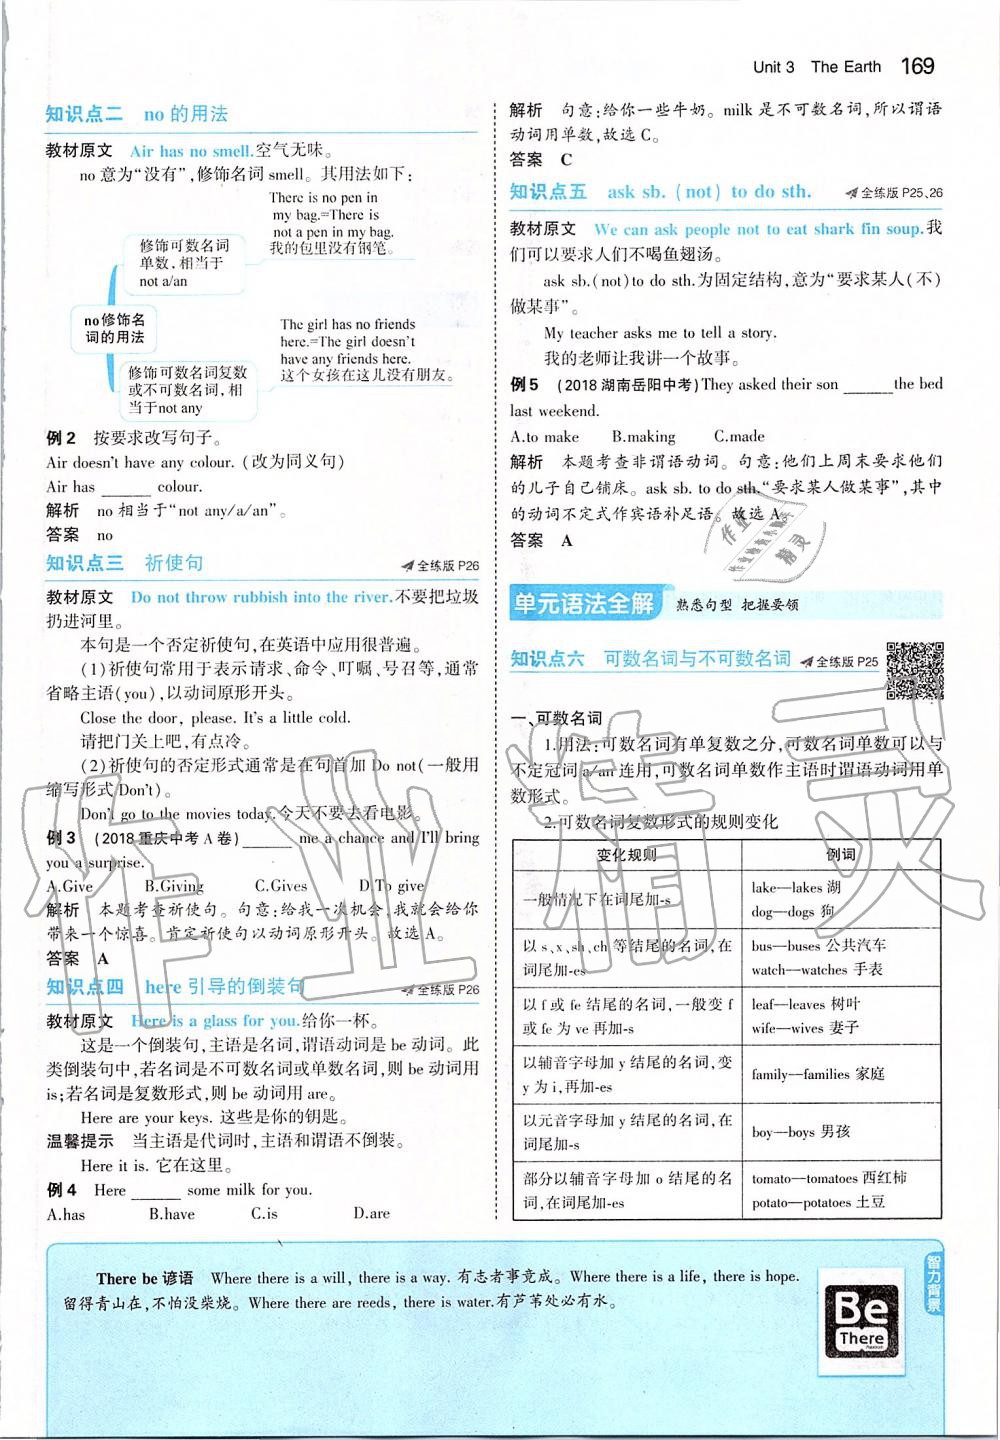 Unit 3 The Earth 169
知识点二 no 的用法
教材原文 Air has no smell.空气无味。
no 意为“没有”,修饰名词 smell。其用法如下:
There is no pen in
my bag.=There is
not a pen in my bag.
我的包里没有钢笔。
修饰可数名词
单数,相当于
not a/an
no修饰名
词的用法
The girl has no friends
here.=The girl doesn't
have any friends here.
这个女孩在这儿没有朋友。
修饰可数名词复数
或不可数名词,相
当于not any
例2 按要求改写句子。
Air doesn't have any colour. (改为同义句)
Air has ______ colour.
解析 no 相当于“not any/a/an”。
答案 no
知识点三 祈使句 全练版 P26
教材原文 Do not throw rubbish into the river.不要把垃圾
扔进河里。
本句是一个否定祈使句,在英语中应用很普遍。
(1)祈使句常用于表示请求、命令、叮嘱、号召等,通常
省略主语(you),以动词原形开头。
Close the door, please. It's a little cold.
请把门关上吧,有点冷。
(2)祈使句的否定形式通常是在句首加 Do not(一般用
缩写形式 Don't)。
Don't go to the movies today.今天不要去看电影。
例3 (2018 重庆中考 A 卷) ______ me a chance and I'll bring
you a surprise.
A.Give B.Giving C.Gives D.To give
解析 本题考查祈使句。句意:给我一次机会,我就会给你
带来一个惊喜。肯定祈使句以动词原形开头。故选 A。
答案 A
知识点四 here 引导的倒装句 全练版 P26
教材原文 Here is a glass for you.给你一杯。
这是一个倒装句,主语是名词,谓语动词是 be 动词。此
类倒装句中,若名词是不可数名词或单数名词,则 be 动词用
is;若名词是复数形式,则 be 动词用 are。
Here are your keys. 这些是你的钥匙。
温馨提示 当主语是代词时,主语和谓语不倒装。
Here it is. 它在这里。
例4 Here ______ some milk for you.
A.has B.have C.is D.are
解析 句意:给你一些牛奶。milk 是不可数名词,所以谓语
动词用单数,故选 C。
答案 C
知识点五 ask sb. (not) to do sth. 全练版 P25、26
教材原文 We can ask people not to eat shark fin soup.我
们可以要求人们不喝鱼翅汤。
ask sb.(not)to do sth.为固定结构,意为“要求某人(不)
做某事”。
My teacher asks me to tell a story.
我的老师让我讲一个故事。
例5 (2018 湖南岳阳中考)They asked their son ______ the bed
last weekend.
A.to make B.making C.made
解析 本题考查非谓语动词。句意:他们上周末要求他们
的儿子自己铺床。ask sb. to do sth.“要求某人做某事”,其中
的动词不定式作宾语补足语。故选 A。
答案 A
单元语法全解 熟悉句型 把握要领
知识点六 可数名词与不可数名词 全练版 P25
一、可数名词
1.用法:可数名词有单复数之分,可数名词单数可以与
不定冠词 a/an 连用,可数名词单数作主语时谓语动词用单
数形式。
2.可数名词复数形式的规则变化
变化规则 例词
一般情况下在词尾加-s lake—lakes 湖
dog—dogs 狗
以 s、x、sh、ch 等结尾的名词,在
词尾加-es bus—buses 公共汽车
watch—watches 手表
以 f 或 fe 结尾的名词,一般变 f
或 fe 为 ve 再加-s leaf—leaves 树叶
wife—wives 妻子
以辅音字母加 y 结尾的名词,变
y 为 i,再加-es family—families 家庭
以元音字母加 y 结尾的名词,在
词尾加-s boy—boys 男孩
部分以辅音字母加 o 结尾的名
词,在词尾加-es tomato—tomatoes 西红柿
potato—potatoes 土豆
There be 谚语 Where there is a will, there is a way. 有志者事竟成。Where there is a life, there is hope.
留得青山在,不怕没柴烧。Where there are reeds, there is water.有芦苇处必有水。
智力背景
Be
There
作业精灵